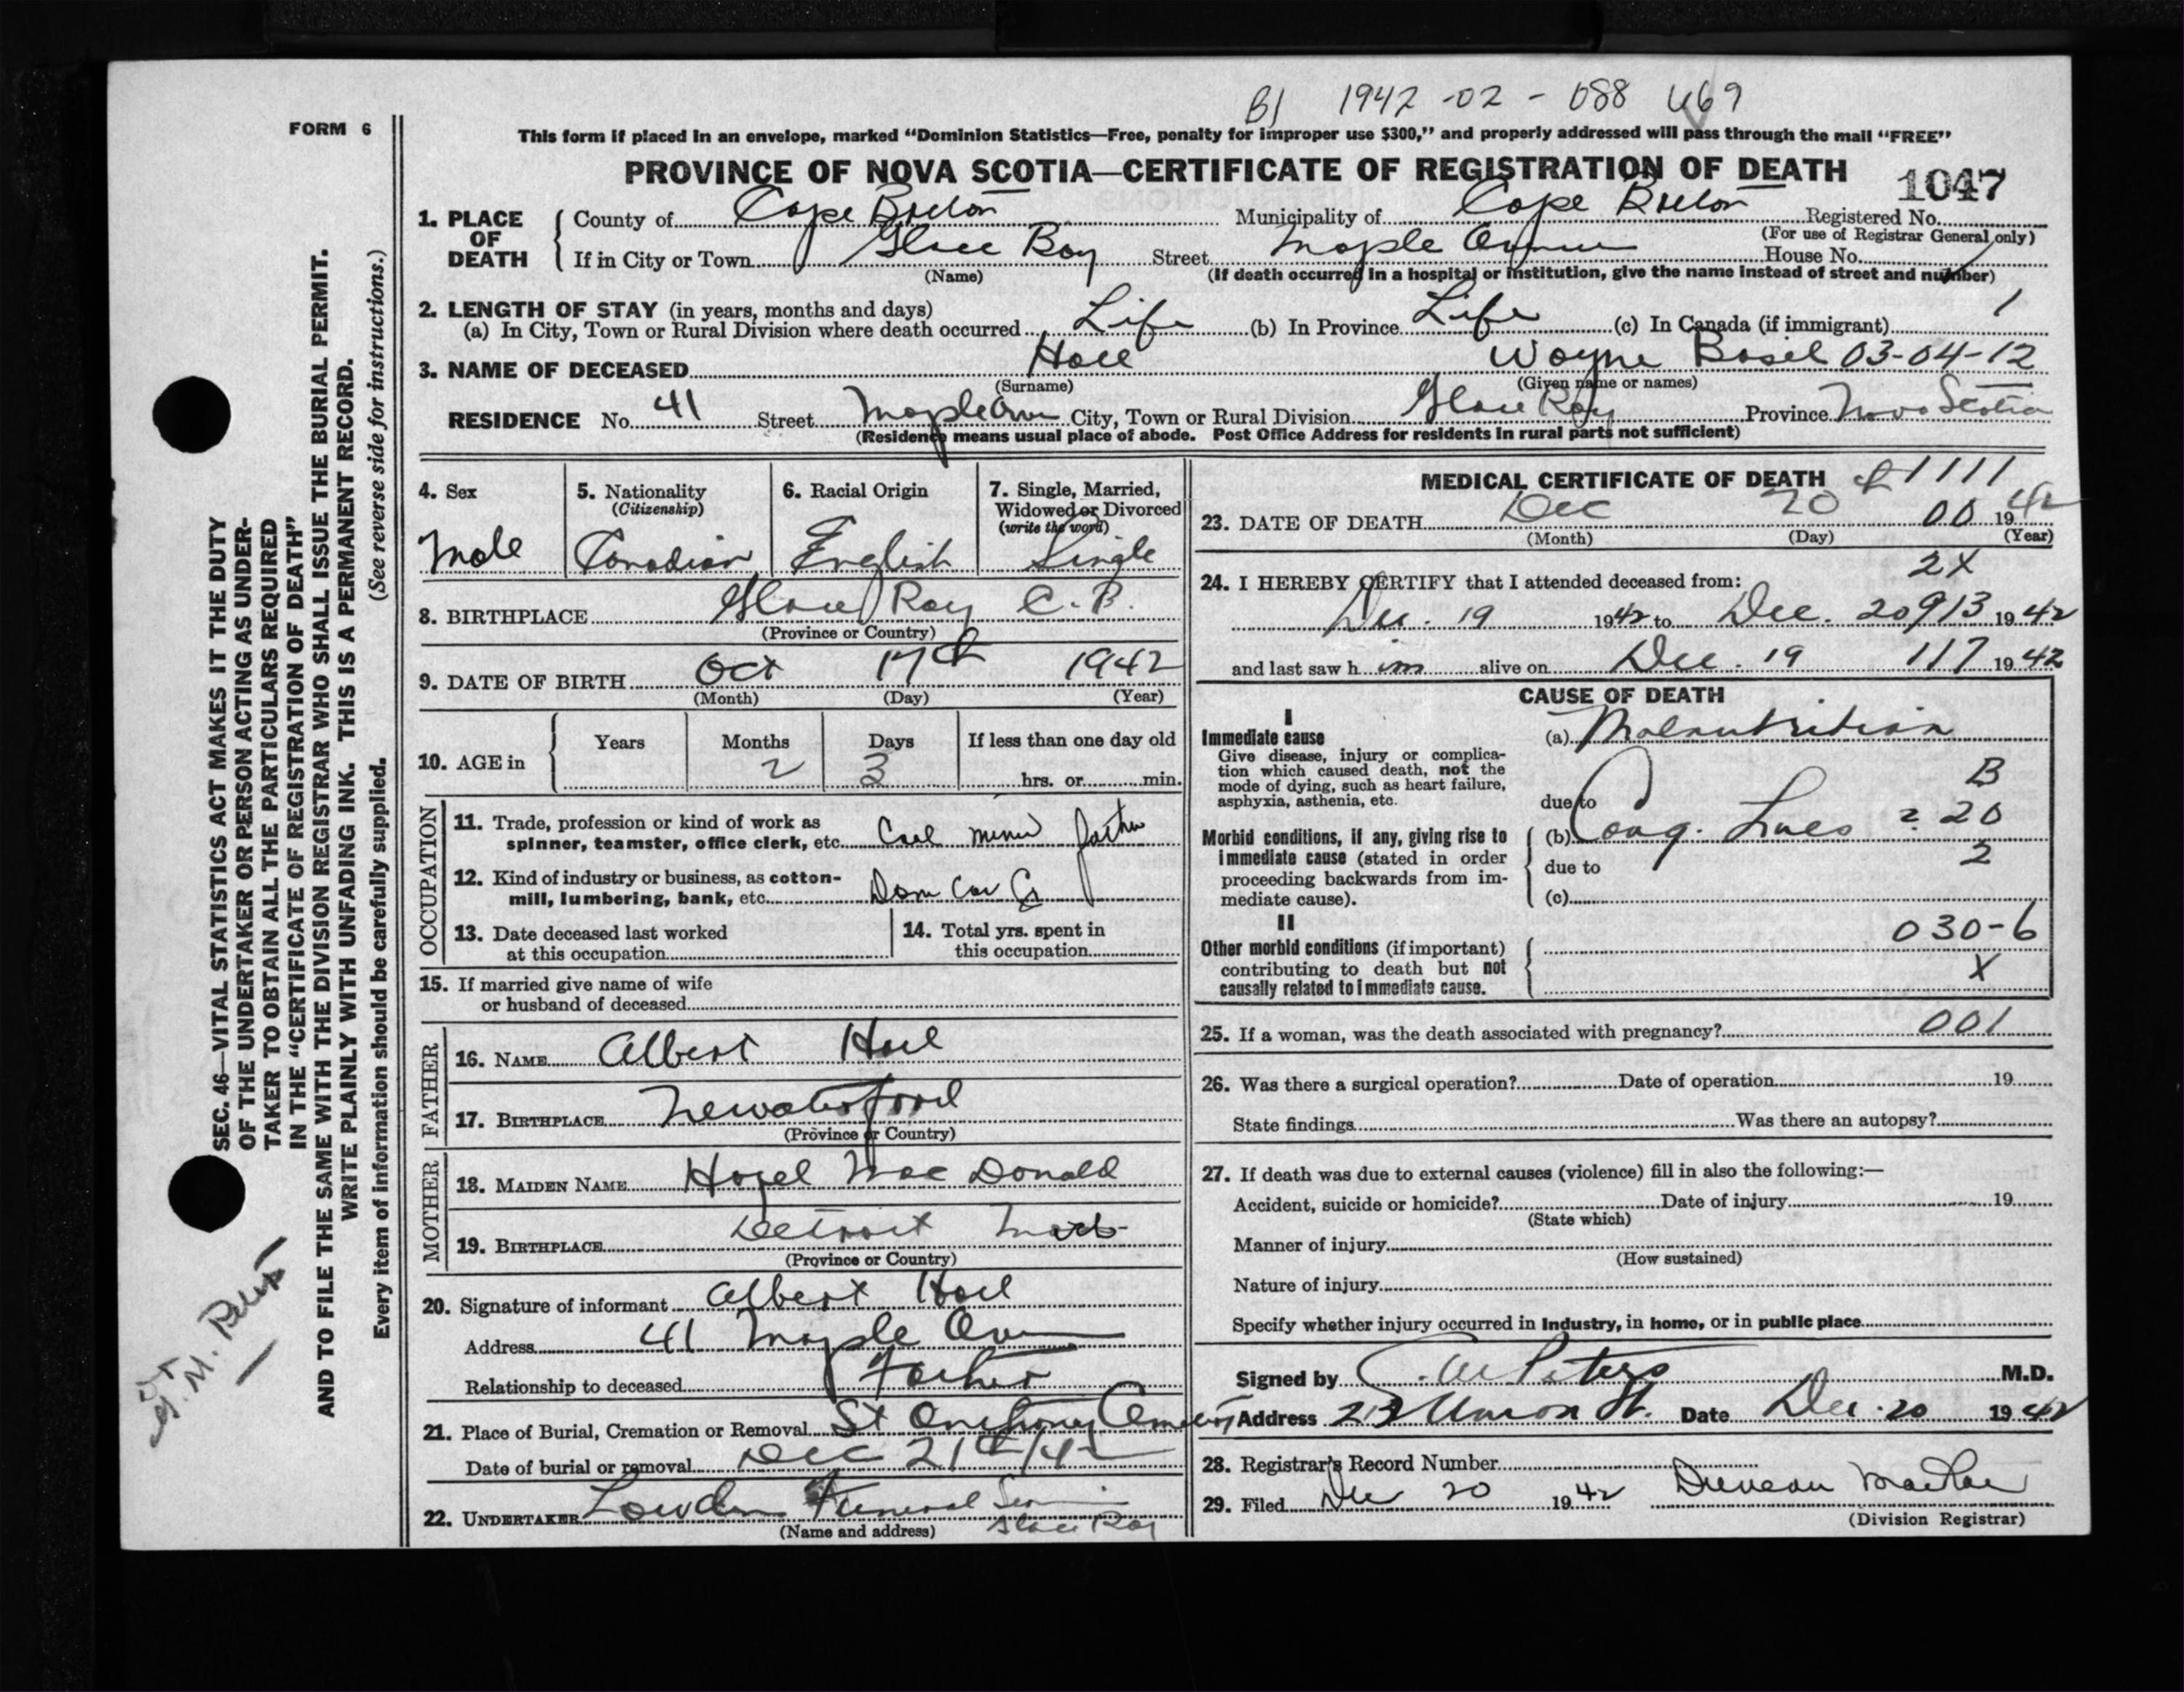 BJ 1942-02-088469
FORM 6
This form if placed in an envelope, marked “Dominion Statistics—Free, penalty for improper use $300,” and properly addressed will pass through the mail “FREE”
PROVINCE OF NOVA SCOTIA—CERTIFICATE OF REGISTRATION OF DEATH 1047
1. PLACE OF DEATH County of Cape Breton Municipality of Cape Breton Registered No.
(For use of Registrar General only)
If in City or Town Glace Bay Street Maple Avenue House No.
(Name) (If death occurred in a hospital or institution, give the name instead of street and number)
2. LENGTH OF STAY (in years, months and days) 1
(a) In City, Town or Rural Division where death occurred Life (b) In Province Life (c) In Canada (if immigrant)
3. NAME OF DECEASED Wayne Basel 03-04-12
(Surname) (Given name or names)
RESIDENCE No. 41 Street Maple Ave City, Town or Rural Division Glace Bay Province Nova Scotia
(Residence means usual place of abode. Post Office Address for residents in rural parts not sufficient)
4. Sex 5. Nationality (Citizenship) 6. Racial Origin 7. Single, Married, Widowed or Divorced (write the word)
Male Canadian English Single
8. BIRTHPLACE Glace Bay C.B.
(Province or Country)
9. DATE OF BIRTH Oct 17th 1942
(Month) (Day) (Year)
10. AGE in Years Months Days If less than one day old
2 3 hrs. or min.
OCCUPATION
11. Trade, profession or kind of work as
spinner, teamster, office clerk, etc. Coal miner father
12. Kind of industry or business, as cotton-
mill, lumbering, bank, etc. Dom Coal Co
13. Date deceased last worked
at this occupation
14. Total yrs. spent in
this occupation
15. If married give name of wife
or husband of deceased
FATHER
16. NAME Albert
17. BIRTHPLACE Newaterford
(Province or Country)
MOTHER
18. MAIDEN NAME Hazel MacDonald
19. BIRTHPLACE Detroit
(Province or Country)
20. Signature of informant Albert
Address 41 Maple Ave
Relationship to deceased Father
21. Place of Burial, Cremation or Removal St Anthony Cemetery
Date of burial or removal Dec 21th/42
22. UNDERTAKER Lowden Funeral
(Name and address) Glace Bay
MEDICAL CERTIFICATE OF DEATH 1111
23. DATE OF DEATH Dec 20 00 1942
(Month) (Day) (Year)
2X
24. I HEREBY CERTIFY that I attended deceased from:
Dec. 19 1942 to Dec. 20 913 1942
and last saw him alive on Dec. 19 117 1942
CAUSE OF DEATH
I
Immediate cause (a) Malnutrition
Give disease, injury or complica-
tion which caused death, not the
mode of dying, such as heart failure,
asphyxia, asthenia, etc.
B
due to
Morbid conditions, if any, giving rise to (b) Cong. Lues ? 20
immediate cause (stated in order due to 2
proceeding backwards from im-
mediate cause). (c)
II
Other morbid conditions (if important) 030-6
contributing to death but not X
causally related to immediate cause.
25. If a woman, was the death associated with pregnancy? 001
26. Was there a surgical operation? Date of operation 19
State findings Was there an autopsy?
27. If death was due to external causes (violence) fill in also the following:—
Accident, suicide or homicide? Date of injury 19
(State which)
Manner of injury
(How sustained)
Nature of injury
Specify whether injury occurred in Industry, in home, or in public place
Signed by Peters M.D.
Address Union St. Date Dec. 20 1942
28. Registrar's Record Number
29. Filed Dec 20 1942 Duncan
(Division Registrar)
SEC. 46—VITAL STATISTICS ACT MAKES IT THE DUTY
OF THE UNDERTAKER OR PERSON ACTING AS UNDER-
TAKER TO OBTAIN ALL THE PARTICULARS REQUIRED
IN THE “CERTIFICATE OF REGISTRATION OF DEATH”
AND TO FILE THE SAME WITH THE DIVISION REGISTRAR WHO SHALL ISSUE THE BURIAL PERMIT.
WRITE PLAINLY WITH UNFADING INK. THIS IS A PERMANENT RECORD.
(See reverse side for instructions.)
Every item of information should be carefully supplied.